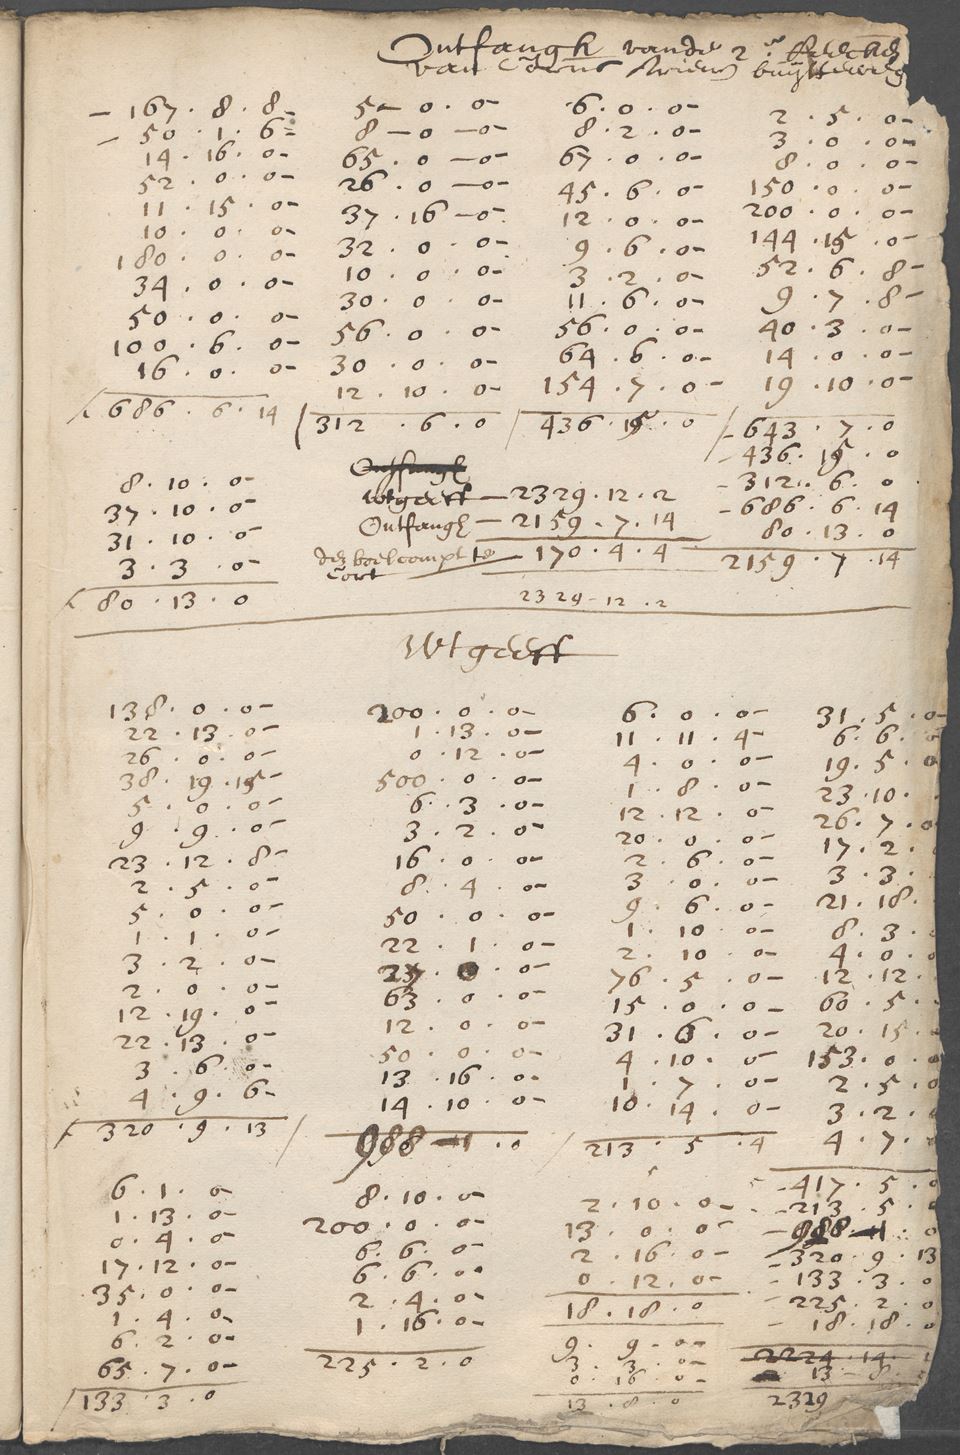 Ontfangh vande 2e
van Corns buyttewech
167 . 8 . 8 –
50 . 1 . 6 –
14 . 16 . 0 –
52 . 0 . 0 –
11 . 15 . 0 –
10 . 0 . 0 –
180 . 0 . 0 –
34 . 0 . 0 –
50 . 0 . 0 –
100 . 6 . 0 –
16 . 0 . 0 –
686 . 6 . 14
5 – 0 . 0 –
8 – 0 – 0 –
65 . 0 – 0 –
26 . 0 – 0 –
37 . 16 – 0 .
32 . 0 . 0 –
10 . 0 . 0 –
30 . 0 . 0 –
56 . 0 . 0 –
30 . 0 . 0 –
12 . 10 . 0 –
312 . 6 . 0
6 . 0 . 0 –
8 . 2 . 0 –
67 . 0 . 0 –
45 . 6 . 0 –
12 . 0 . 0 –
9 . 6 . 0 –
3 . 2 . 0 –
11 . 6 . 0 –
56 . 0 . 0 –
64 . 6 . 0 –
154 . 7 . 0 –
436 . 15 . 0
2 . 5 . 0 –
3 . 0 . 0 –
8 . 0 . 0 –
150 . 0 . 0 –
200 . 0 . 0 –
144 . 15 . 0 –
52 . 6 . 8 –
9 . 7 . 8 –
40 . 3 . 0 –
14 . 0 . 0 –
19 . 10 . 0 –
– 643 . 7 . 0
– 436 . 15 . 0
– 312 . 6 . 0
– 686 . 6 . 14
80 . 13 . 0
2159 . 7 . 14
8 . 10 . 0 –
37 . 10 . 0 –
31 . 10 . 0 –
3 . 3 . 0 –
80 . 13 . 0
Ontfangh
Wtgeeff – 2329 . 12 . 2
Ontfangh – 2159 . 7 . 14
den boel compt te – 170 . 4 . 4
Cort
2329 – 12 . 2
Wtgeeff
138 . 0 . 0 –
22 . 13 . 0 –
26 . 0 . 0 –
38 . 19 . 15 –
5 . 0 . 0 –
9 . 9 . 0 –
23 . 12 . 8 –
2 . 5 . 0 –
5 . 0 . 0 –
1 . 1 . 0 –
3 . 2 . 0 –
2 . 0 . 0 –
12 . 19 . 0 –
22 . 13 . 0 –
3 . 6 . 0 –
4 . 9 . 6 –
320 . 9 . 13
200 . 0 . 0 –
1 . 13 . 0 –
0 . 12 . 0 –
500 . 0 . 0 –
6 . 3 . 0 –
3 . 2 . 0 –
16 . 0 . 0 –
8 . 4 . 0 –
50 . 0 . 0 –
22 . 1 . 0 –
27 . 0 . 0 –
63 . 0 . 0 –
12 . 0 . 0 –
50 . 0 . 0 –
13 . 16 . 0 –
14 . 10 . 0 –
988 – 11 . 0
6 . 0 . 0 –
11 . 11 . 4 –
4 . 0 . 0 –
1 . 8 . 0 –
12 . 12 . 0 –
20 . 0 . 0 –
2 . 6 . 0 –
3 . 0 . 0 –
9 . 6 . 0 –
1 . 10 . 0 –
2 . 10 . 0 –
76 . 5 . 0 –
15 . 0 . 0 –
31 . 6 . 0 –
4 . 10 . 0 –
1 . 7 . 0 –
10 . 14 . 0 –
213 . 5 . 4
31 . 5 . 0 –
6 . 6 . 0
19 . 5 . 0
23 . 10 .
26 . 7 . 0
17 . 2 .
3 . 3 .
21 . 18 .
8 . 3 .
4 . 0 . 0
12 . 12 .
60 . 5 .
20 . 15 .
153 . 0 . 0
2 . 5 . 0
3 . 2 .
4 . 7 .
– 417 . 5 . 0
– 213 . 5 .
– 988 – 11 . 0
– 320 . 9 . 13
– 133 . 3 . 0
– 225 . 2 . 0
– 18 . 18 . 0
2224 . 14 .
13 – 8 .
2329
6 . 1 . 0 –
1 . 13 . 0 –
0 . 4 . 0 –
17 . 12 . 0 –
35 . 0 . 0 –
1 . 4 . 0 –
6 . 2 . 0 –
65 . 7 . 0 –
133 . 3 . 0
8 . 10 . 0 –
200 . 0 . 0 –
6 . 6 . 0 –
6 . 6 . 0
2 . 4 . 0 –
1 . 16 . 0 –
225 . 2 . 0
2 . 10 . 0 –
13 . 0 . 0 –
2 . 16 . 0 –
0 . 12 . 0 –
18 . 18 . 0
9 . 9 . 0 –
3 . 3 . 0 –
0 . 16 . 0 –
13 . 8 . 0